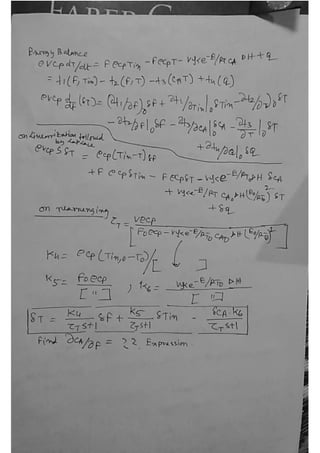 FABER CA
Energy Balance
ρVCp dT/dt = FρCpTin - FρCpT - Vγke^-E/RT CA ΔH + q
= f1(F, Tin) - f2(F, T) - f3(CA, T) + f4(q)
ρVCp d/dt (δT) = (∂f1/∂F)|0 δF + ∂f1/∂Tin|0 δTin - ∂f2/∂T)0 δT
- ∂f2/∂F|0 δF - ∂f3/∂CA|0 δCA - ∂f3/∂T|0 δT
+ ∂f4/∂q|0 δq
on linearization followed
by laplace
ρVCp S δT = ρCp (Tin-T) δF
+ F ρCp δTin - FρCp δT - Vγke^-E/RT ΔH δCA
+ Vγke^-E/RT CA ΔH (E/RT)^2 δT
+ δq
on rearranging
τT = VρCp / [F0ρCp - Vγke^-E/RT0 CA0 ΔH (E0/RT0)^2]
K4 = ρCp (Tin,0 - T0) / [ ]
K5 = F0ρCp / [ " ] , K6 = Vγke^-E/RT0 ΔH / [ " ]
δT = K4 / τTS+1 δF + K5 / τTS+1 δTin - δCA·K6 / τTS+1
Find ∂CA/∂F = ?? Expression.